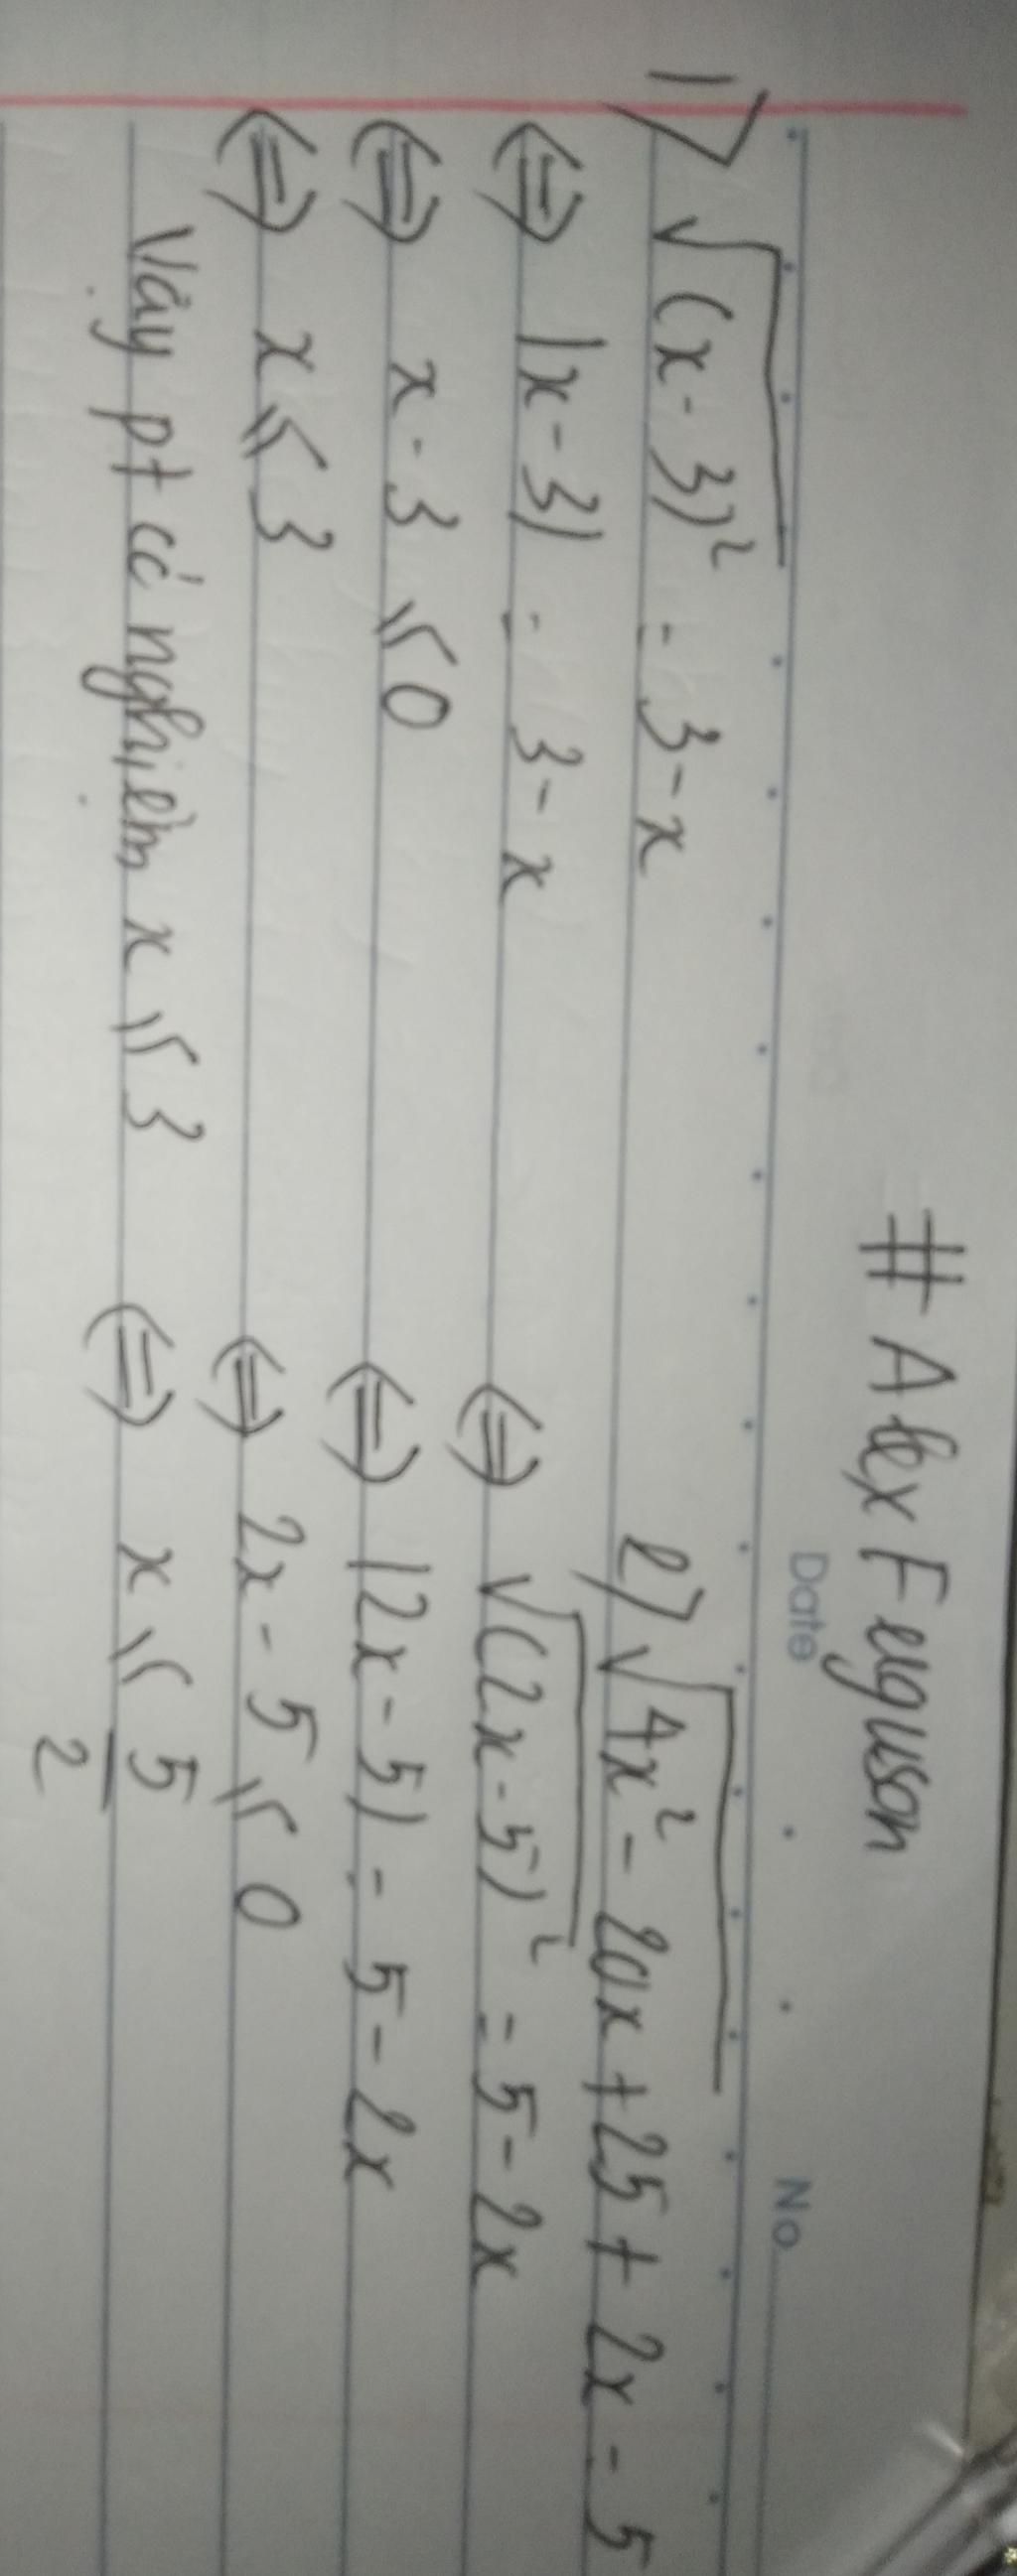 # Alex Ferguson
Date
No.
1) √(x-3)² = 3-x
⇔ |x-3| = 3-x
⇔ x-3 ⩽ 0
⇔ x ⩽ 3
Vậy pt có nghiệm x ⩽ 3
2) √4x² - 20x + 25 + 2x - 5
⇔ √(2x-5)² = 5-2x
⇔ |2x-5| = 5-2x
⇔ 2x-5 ⩽ 0
⇔ x ⩽ 5/2